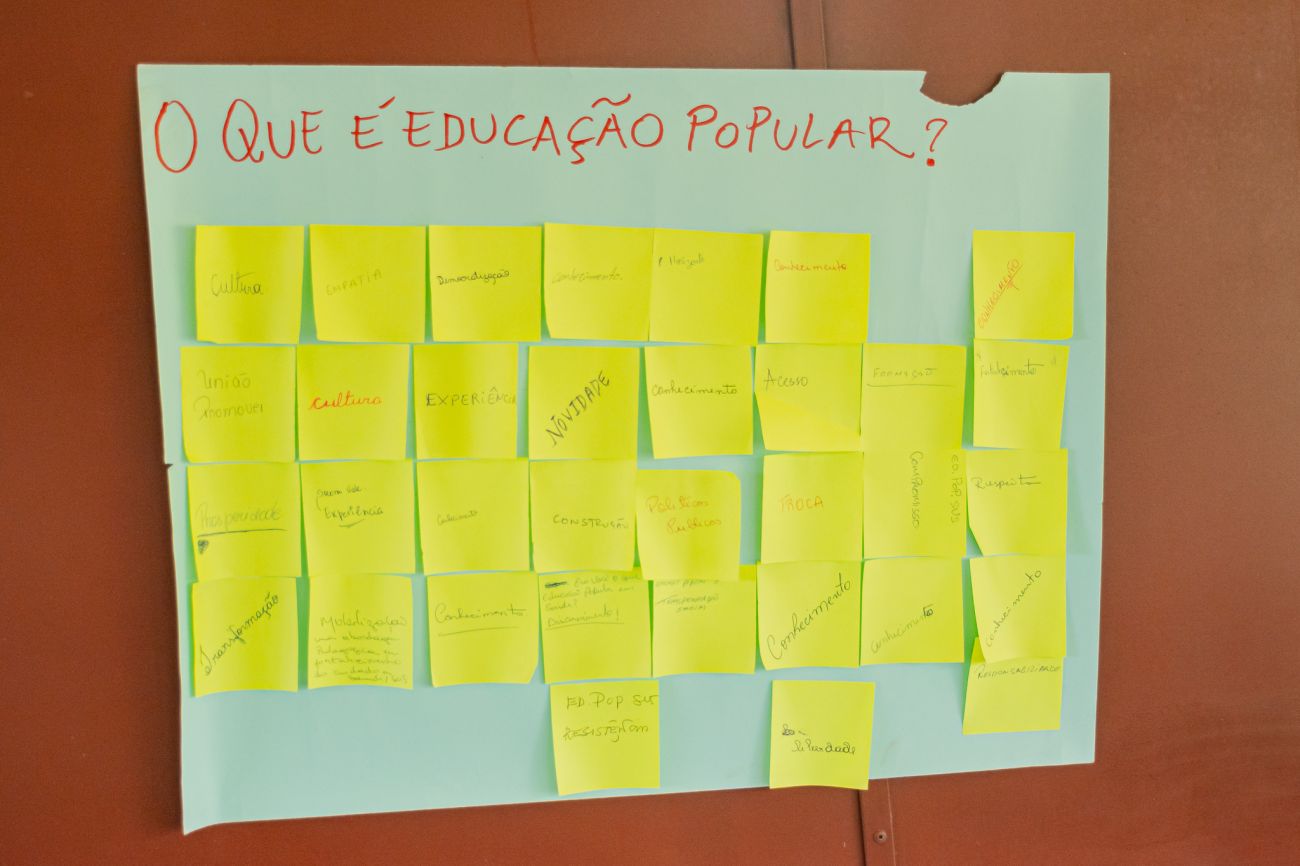 O QUE É EDUCAÇÃO POPULAR?
Cultura
EMPATIA
Democratização
Conhecimento.
Conhecimento
CONHECIMENTO
União
Promover
cultura
EXPERIÊNCIA
NOVIDADE
Conhecimento
Acesso
FORMAÇÃO
Fortalecimento
Prosperidade
Experiência
Conhecimento
CONSTRUÇÃO
Políticas
Publicas
TROCA
ED. POP. SUS
COMPROMISSO
Respeito
Transformação
Mobilização
uma abordagem
Pedagógica
fortalecimento
Conhecimento
Educação Popular em
Saúde?
TRANSFORMAÇÃO
Conhecimento
Conhecimento
Conhecimento
RESPONSABILIDADE
ED. POP SUS
liberdade